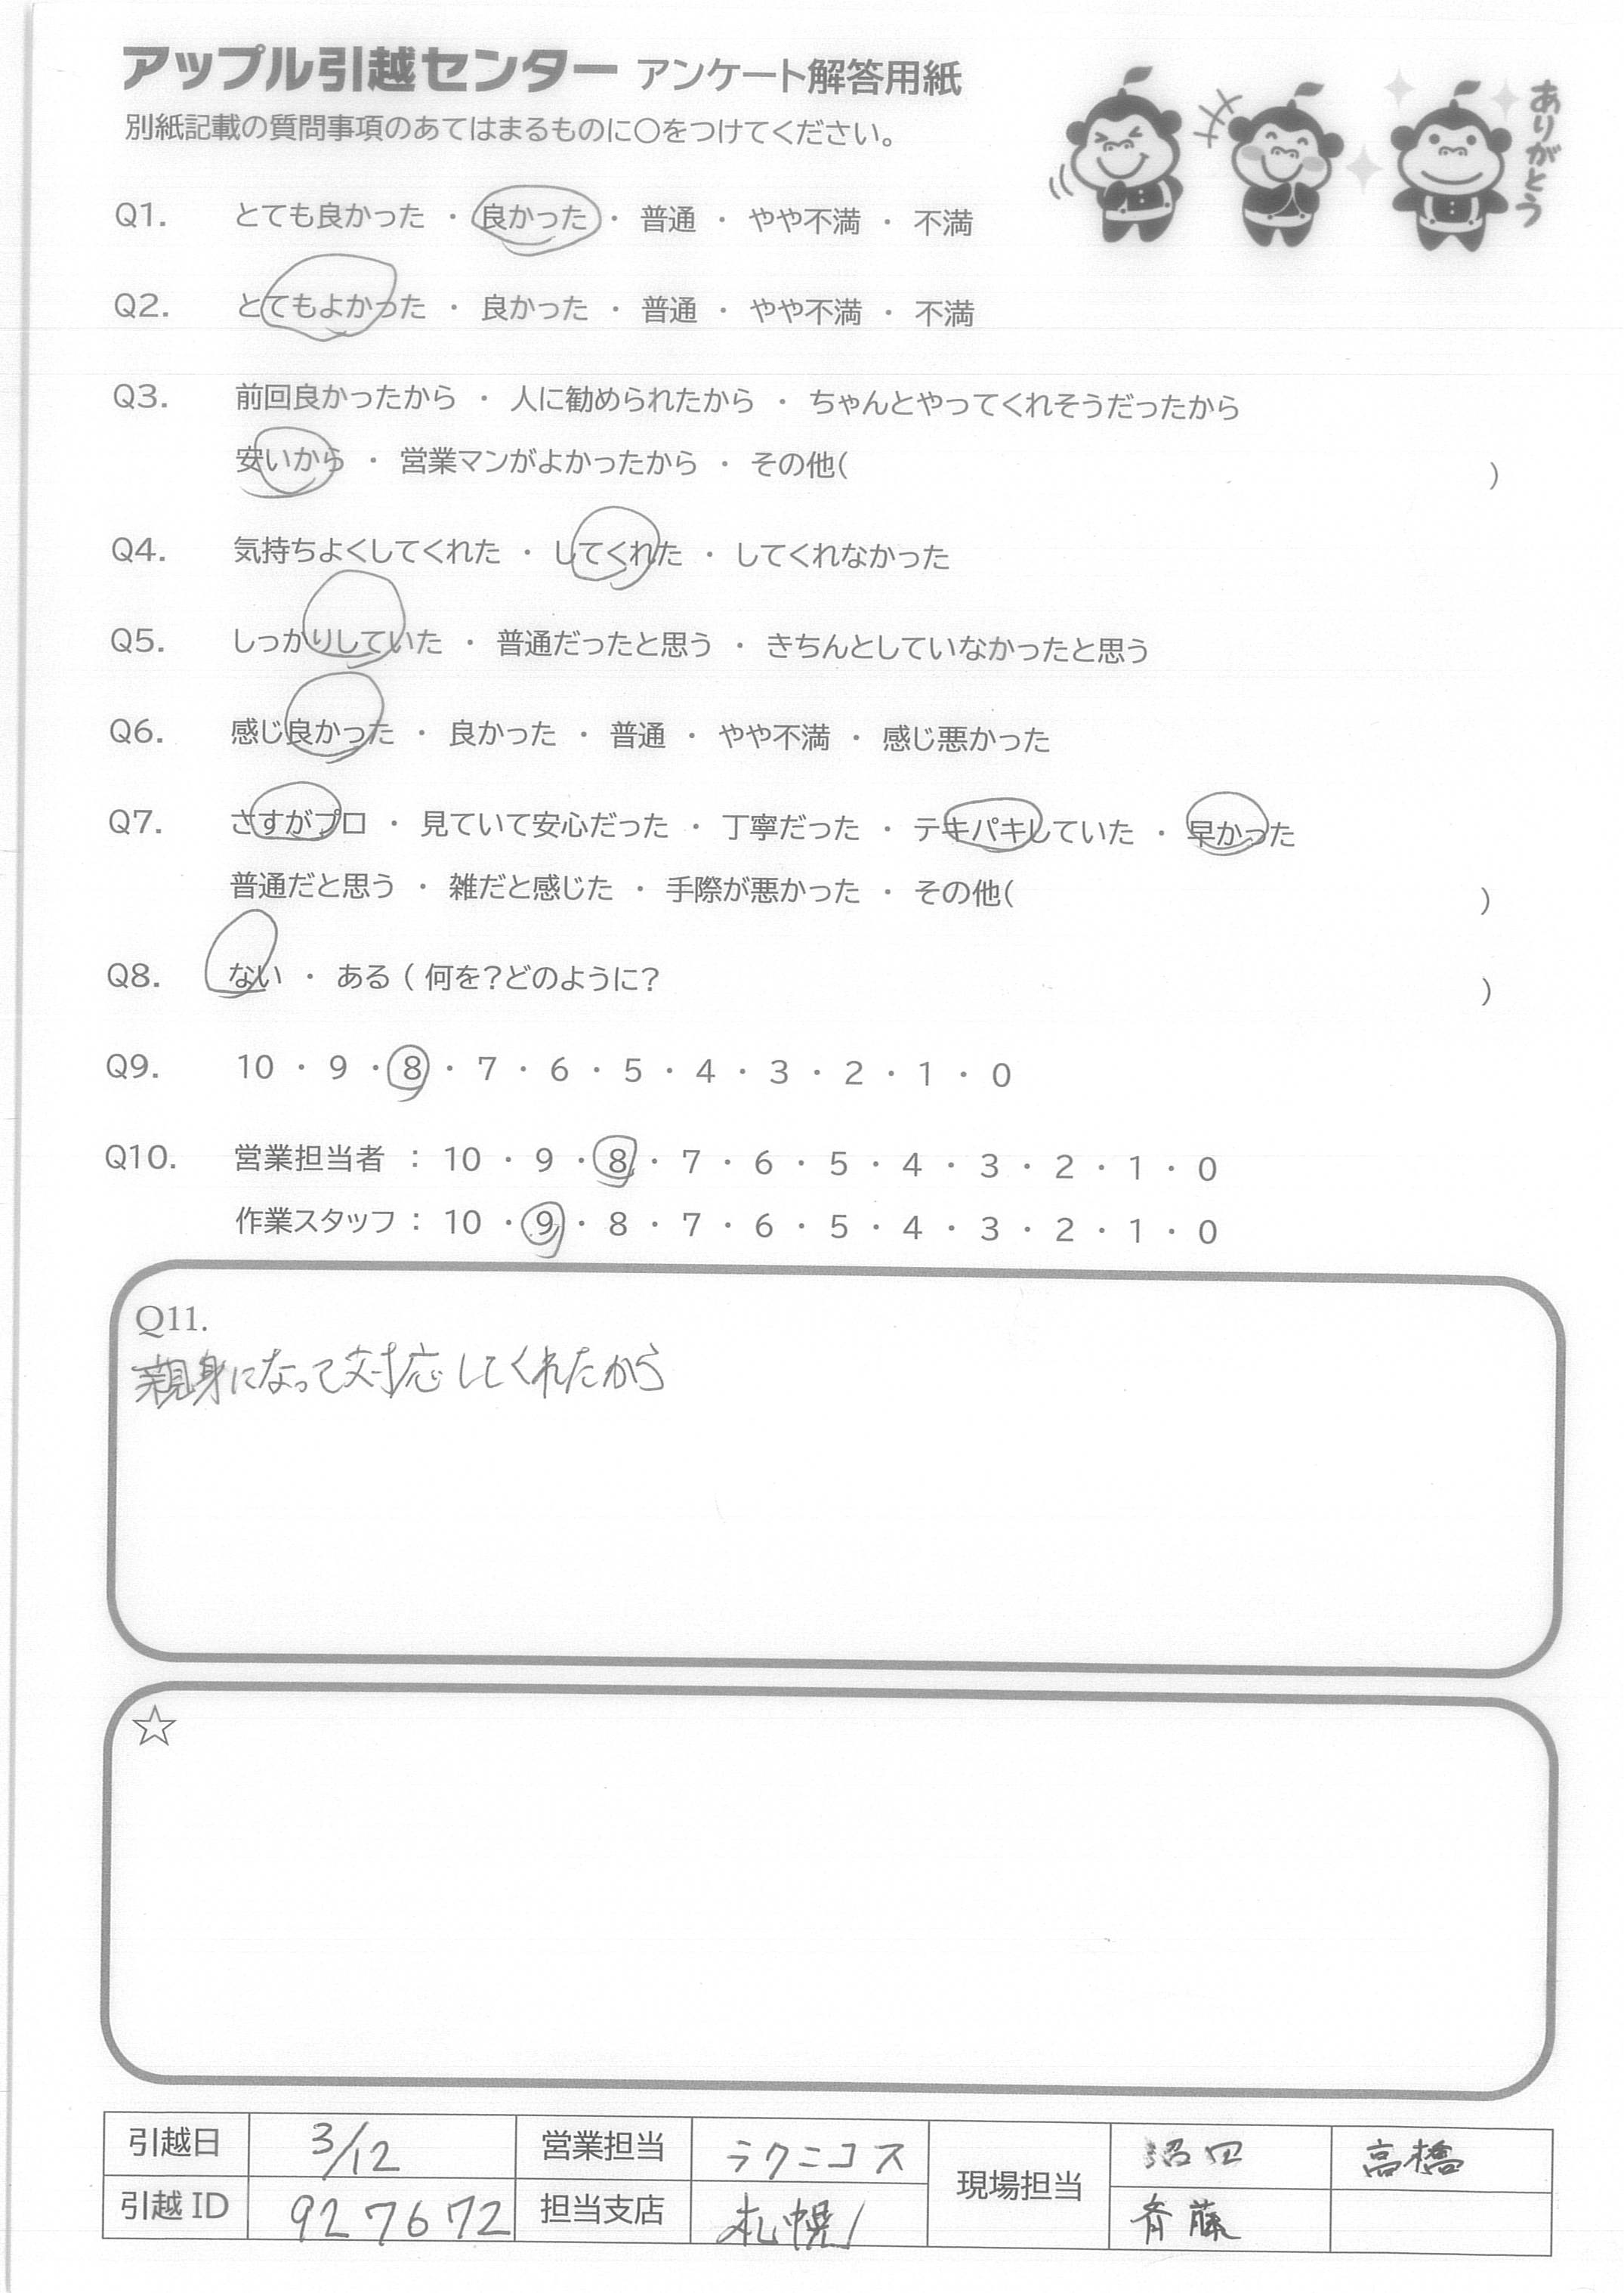 アップル引越センター アンケート解答用紙
別紙記載の質問事項のあてはまるものに○をつけてください。
ありがとう
Q1. とても良かった ・ 良かった ・ 普通 ・ やや不満 ・ 不満
Q2. とてもよかった ・ 良かった ・ 普通 ・ やや不満 ・ 不満
Q3. 前回良かったから ・ 人に勧められたから ・ ちゃんとやってくれそうだったから
安いから ・ 営業マンがよかったから ・ その他( )
Q4. 気持ちよくしてくれた ・ してくれた ・ してくれなかった
Q5. しっかりしていた ・ 普通だったと思う ・ きちんとしていなかったと思う
Q6. 感じ良かった ・ 良かった ・ 普通 ・ やや不満 ・ 感じ悪かった
Q7. さすがプロ ・ 見ていて安心だった ・ 丁寧だった ・ テキパキしていた ・ 早かった
普通だと思う ・ 雑だと感じた ・ 手際が悪かった ・ その他( )
Q8. ない ・ ある ( 何を?どのように? )
Q9. 10 ・ 9 ・ 8 ・ 7 ・ 6 ・ 5 ・ 4 ・ 3 ・ 2 ・ 1 ・ 0
Q10. 営業担当者 : 10 ・ 9 ・ 8 ・ 7 ・ 6 ・ 5 ・ 4 ・ 3 ・ 2 ・ 1 ・ 0
作業スタッフ : 10 ・ 9 ・ 8 ・ 7 ・ 6 ・ 5 ・ 4 ・ 3 ・ 2 ・ 1 ・ 0
Q11.
親身になって対応してくれたから
☆
引越日 3/12 営業担当 ラクニコス 現場担当 沼田 高橋
引越ID 927672 担当支店 札幌 斉藤